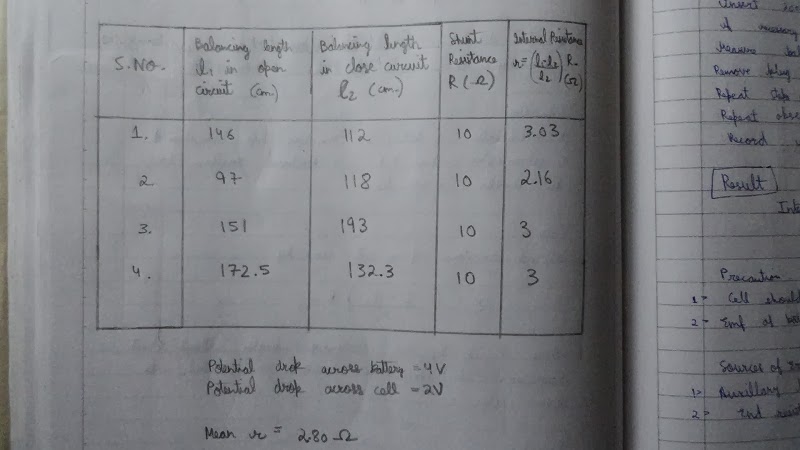 S.NO.
Balancing length
l₁ in open
circuit (cm.)
Balancing length
in close circuit
l₂ (cm.)
Shunt
Resistance
R (Ω)
Internal Resistance
r = (l₁-l₂/l₂) R
(Ω)
1. 146 112 10 3.03
2. 97 118 10 2.16
3. 151 193 10 3
4. 172.5 132.3 10 3
Potential drop across battery = 4V
Potential drop across cell = 2V
Mean r = 2.80 Ω
Insert
A necessary
Measure
Remove
Repeat
Repeat
Record
Result
Precaution
1> Cell should
2> Emf of
Sources of
1> Auxillary
2> End